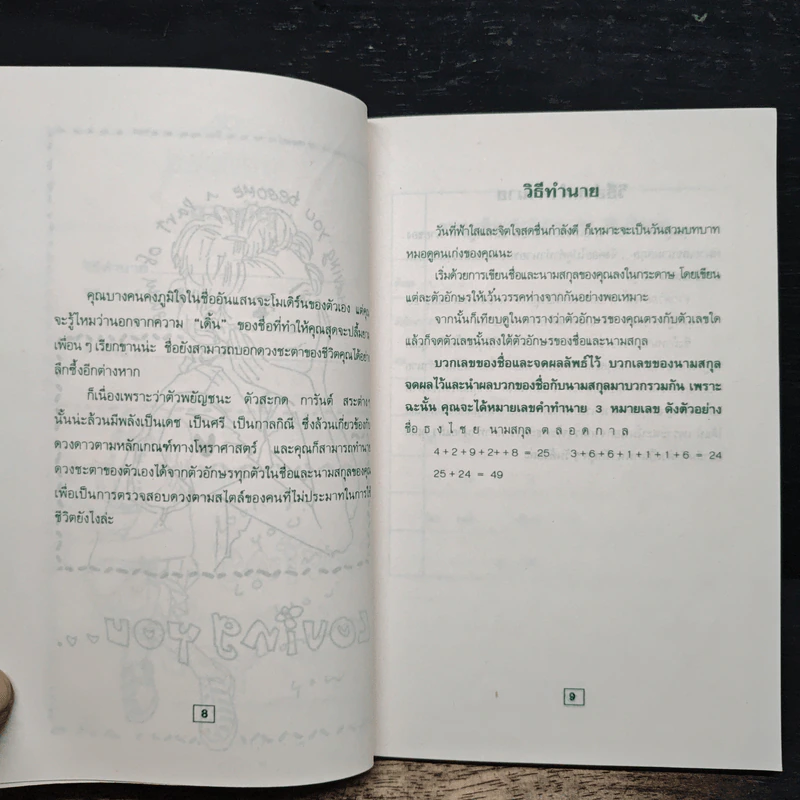 คุณบางคนคงภูมิใจในชื่ออันแสนจะโมเดิร์นของตัวเอง แต่คุณ
จะรู้ไหมว่านอกจากความ "เดิ้น" ของชื่อที่ทำให้คุณสุดจะปลื้มยาม
เพื่อน ๆ เรียกขานน่ะ ชื่อยังสามารถบอกดวงชะตาของชีวิตคุณได้อย่าง
ลึกซึ้งอีกต่างหาก
ก็เนื่องเพราะว่าตัวพยัญชนะ ตัวสะกด การันต์ สระต่างๆ
นั้นน่ะล้วนมีพลังเป็นเดช เป็นศรี เป็นกาลกิณี ซึ่งล้วนเกี่ยวข้องกับ
ดวงดาวตามหลักเกณฑ์ทางโหราศาสตร์ และคุณก็สามารถทำนาย
ดวงชะตาของตัวเองได้จากตัวอักษรทุกตัวในชื่อและนามสกุลของคุณ
เพื่อเป็นการตรวจสอบดวงตามสไตล์ของคนที่ไม่ประมาทในการใช้
ชีวิตยังไงล่ะ
8
วิธีทำนาย
วันที่ฟ้าใสและจิตใจสดชื่นกำลังดี ก็เหมาะจะเป็นวันสวมบทบาท
หมอดูคนเก่งของคุณนะ
เริ่มด้วยการเขียนชื่อและนามสกุลของคุณลงในกระดาษ โดยเขียน
แต่ละตัวอักษรให้เว้นวรรคห่างจากกันอย่างพอเหมาะ
จากนั้นก็เทียบดูในตารางว่าตัวอักษรของคุณตรงกับตัวเลขใด
แล้วก็จดตัวเลขนั้นลงใต้ตัวอักษรของชื่อและนามสกุล
บวกเลขของชื่อและจดผลลัพธ์ไว้ บวกเลขของนามสกุล
จดผลไว้และนำผลบวกของชื่อกับนามสกุลมาบวกรวมกัน เพราะ
ฉะนั้น คุณจะได้หมายเลขคำทำนาย 3 หมายเลข ดังตัวอย่าง
ชื่อ ธ ง ไ ช ย นามสกุล ต ล อ ด ก า ล
4+2+9+2++8 = 25 3+6+6+1+1+1+6 = 24
25+24 = 49
9